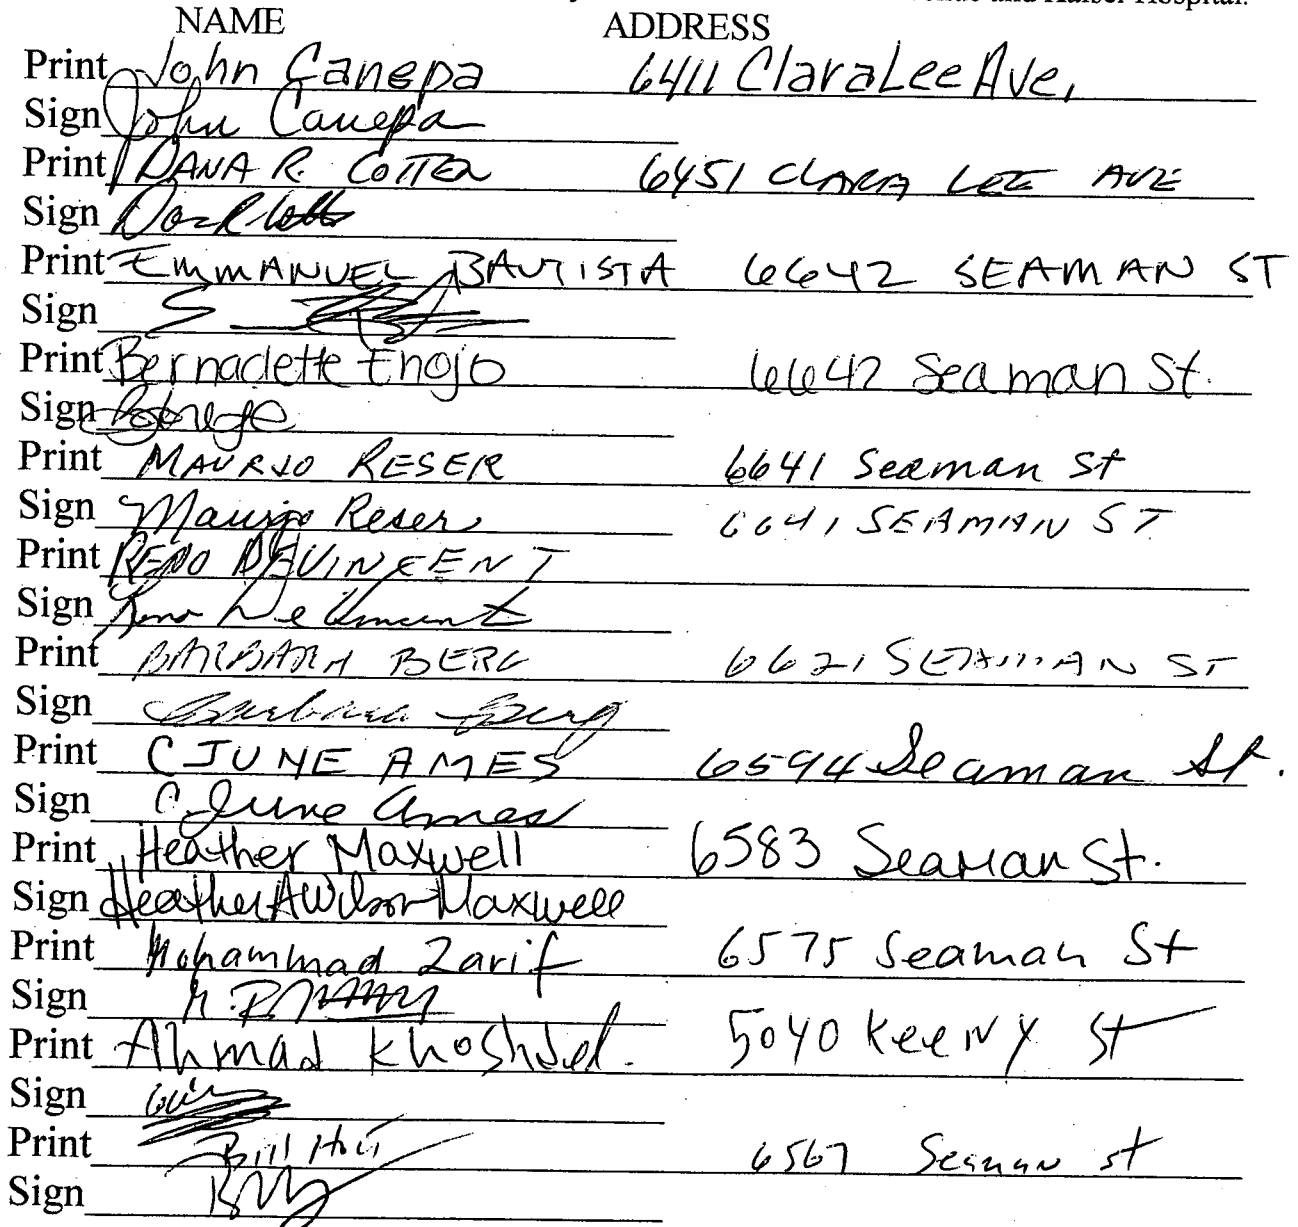 and Kaiser Hospital.
NAME ADDRESS
Print John Canepa 6411 ClaraLee Ave,
Sign John Canepa
Print DANA R. COTTER 6451 CLARA LEE AVE
Sign
Print EMMANUEL BAUTISTA 6642 SEAMAN ST
Sign
Print Bernadette Enojo 6642 Seaman St.
Sign
Print MAURJO RESER 6641 Seaman St
Sign Maurjo Reser 6641 SEAMAN ST
Print RENO DEVINCENT
Sign Reno DeVincent
Print BARBARA BERG 6621 SEAMAN ST
Sign Barbara Berg
Print C JUNE AMES 6594 Seaman St.
Sign C. June Ames
Print Heather Maxwell 6583 Seaman St.
Sign Heather A Wilson-Maxwell
Print Mohammad Zarif 6575 Seaman St
Sign
Print Ahmad Khoshdel. 5040 KeeNy St
Sign
Print Bill 6567 Seaman St
Sign